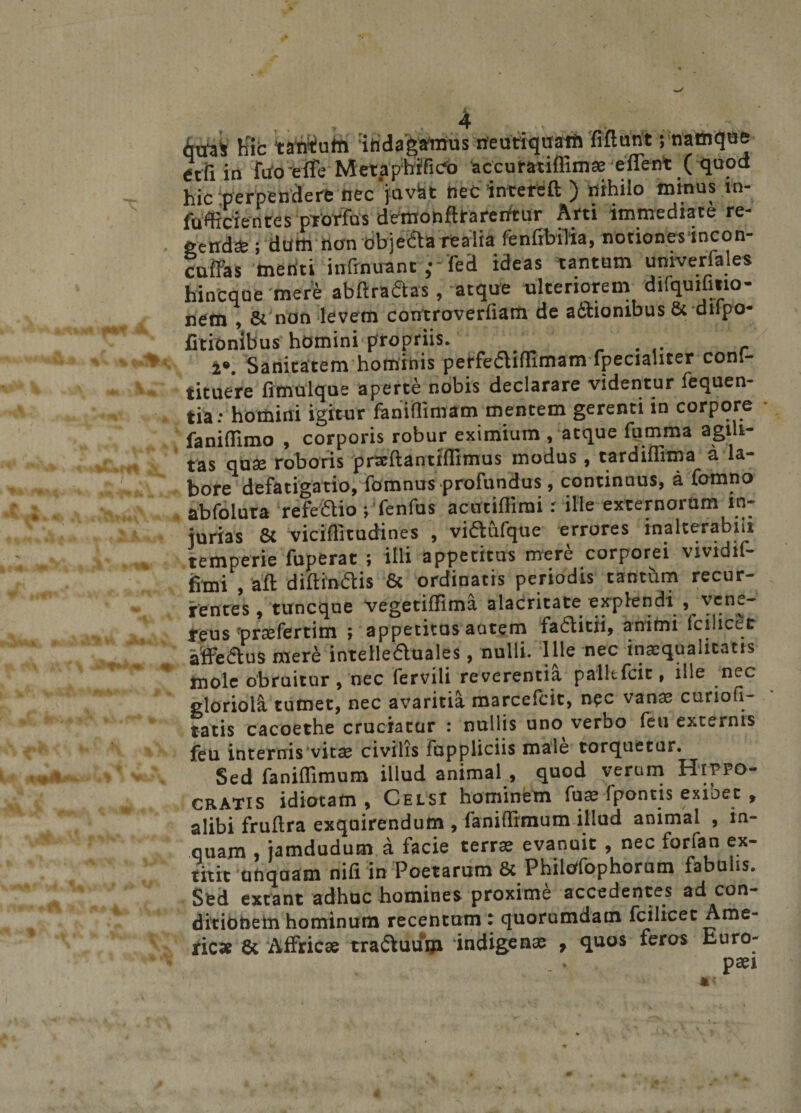 4
quas hic tantum indagamus neutiquam ſiſtunt ; namque
etſi in ſuo eſſe Metaphiſico accuratiſſimæ eſſent ( quod
hic perpendere nec juvat nec intereſt ) nihilo minus in-
ſufficientes prorſus demonſtrarentur Arti immediate re-
gendæ ; dum non objecta realia ſenſibilia, notiones incon-
cuſſas menti inſinuant ; ſed ideas tantum univerſales
hincque merè abſtractas , atque ulteriorem diſquiſitio-
nem , & non levem controverſiam de actionibus & diſpo-
ſitionibus homini propriis.
2°. Sanitatem hominis perfectiſſimam ſpecialiter conſ-
tituere ſimulque apertè nobis declarare videntur ſequen-
tia : homini igitur ſaniſſimam mentem gerenti in corpore
ſaniſſimo , corporis robur eximium , atque ſumma agili-
tas quæ roboris præſtantiſſimus modus , tardiſſima à la-
bore defatigatio, ſomnus profundus , continuus, à ſomno
abſoluta refectio ; ſenſus acutiſſimi : ille externorum in-
jurias & viciſſitudines , victûſque errores inalterabili
temperie ſuperat ; illi appetitus merè corporei vividiſ-
ſimi , aſt diſtinctis & ordinatis periodis tantùm recur-
rentes , tuncque vegetiſſimâ alacritate explendi , vene-
reus præſertim ; appetitus autem factitii, animi ſcilicet
affectus merè intellectuales , nulli. Ille nec inæqualitatis
mole obruitur , nec ſervili reverentiâ palleſcit, ille nec
gloriolâ tumet, nec avaritiâ marceſcit, nec vanæ curioſi-
tatis cacoethe cruciatur : nullis uno verbo ſeu externis
ſeu internis vitæ civilis ſuppliciis malè torquetur.
Sed ſaniſſimum illud animal , quod verum HIPPO-
CRATIS idiotam , CELSI hominem ſuæ ſpontis exibet ,
alibi fruſtra exquirendum , ſaniſſimum illud animal , in-
quam , jamdudum à facie terræ evanuit , nec forſan ex-
titit unquam niſi in Poetarum & Philoſophorum fabulis.
Sed extant adhuc homines proximè accedentes ad con-
ditionem hominum recentum : quorumdam ſcilicet Ame-
ricæ & Affricæ tractuum indigenæ , quos feros Euro-
pæi